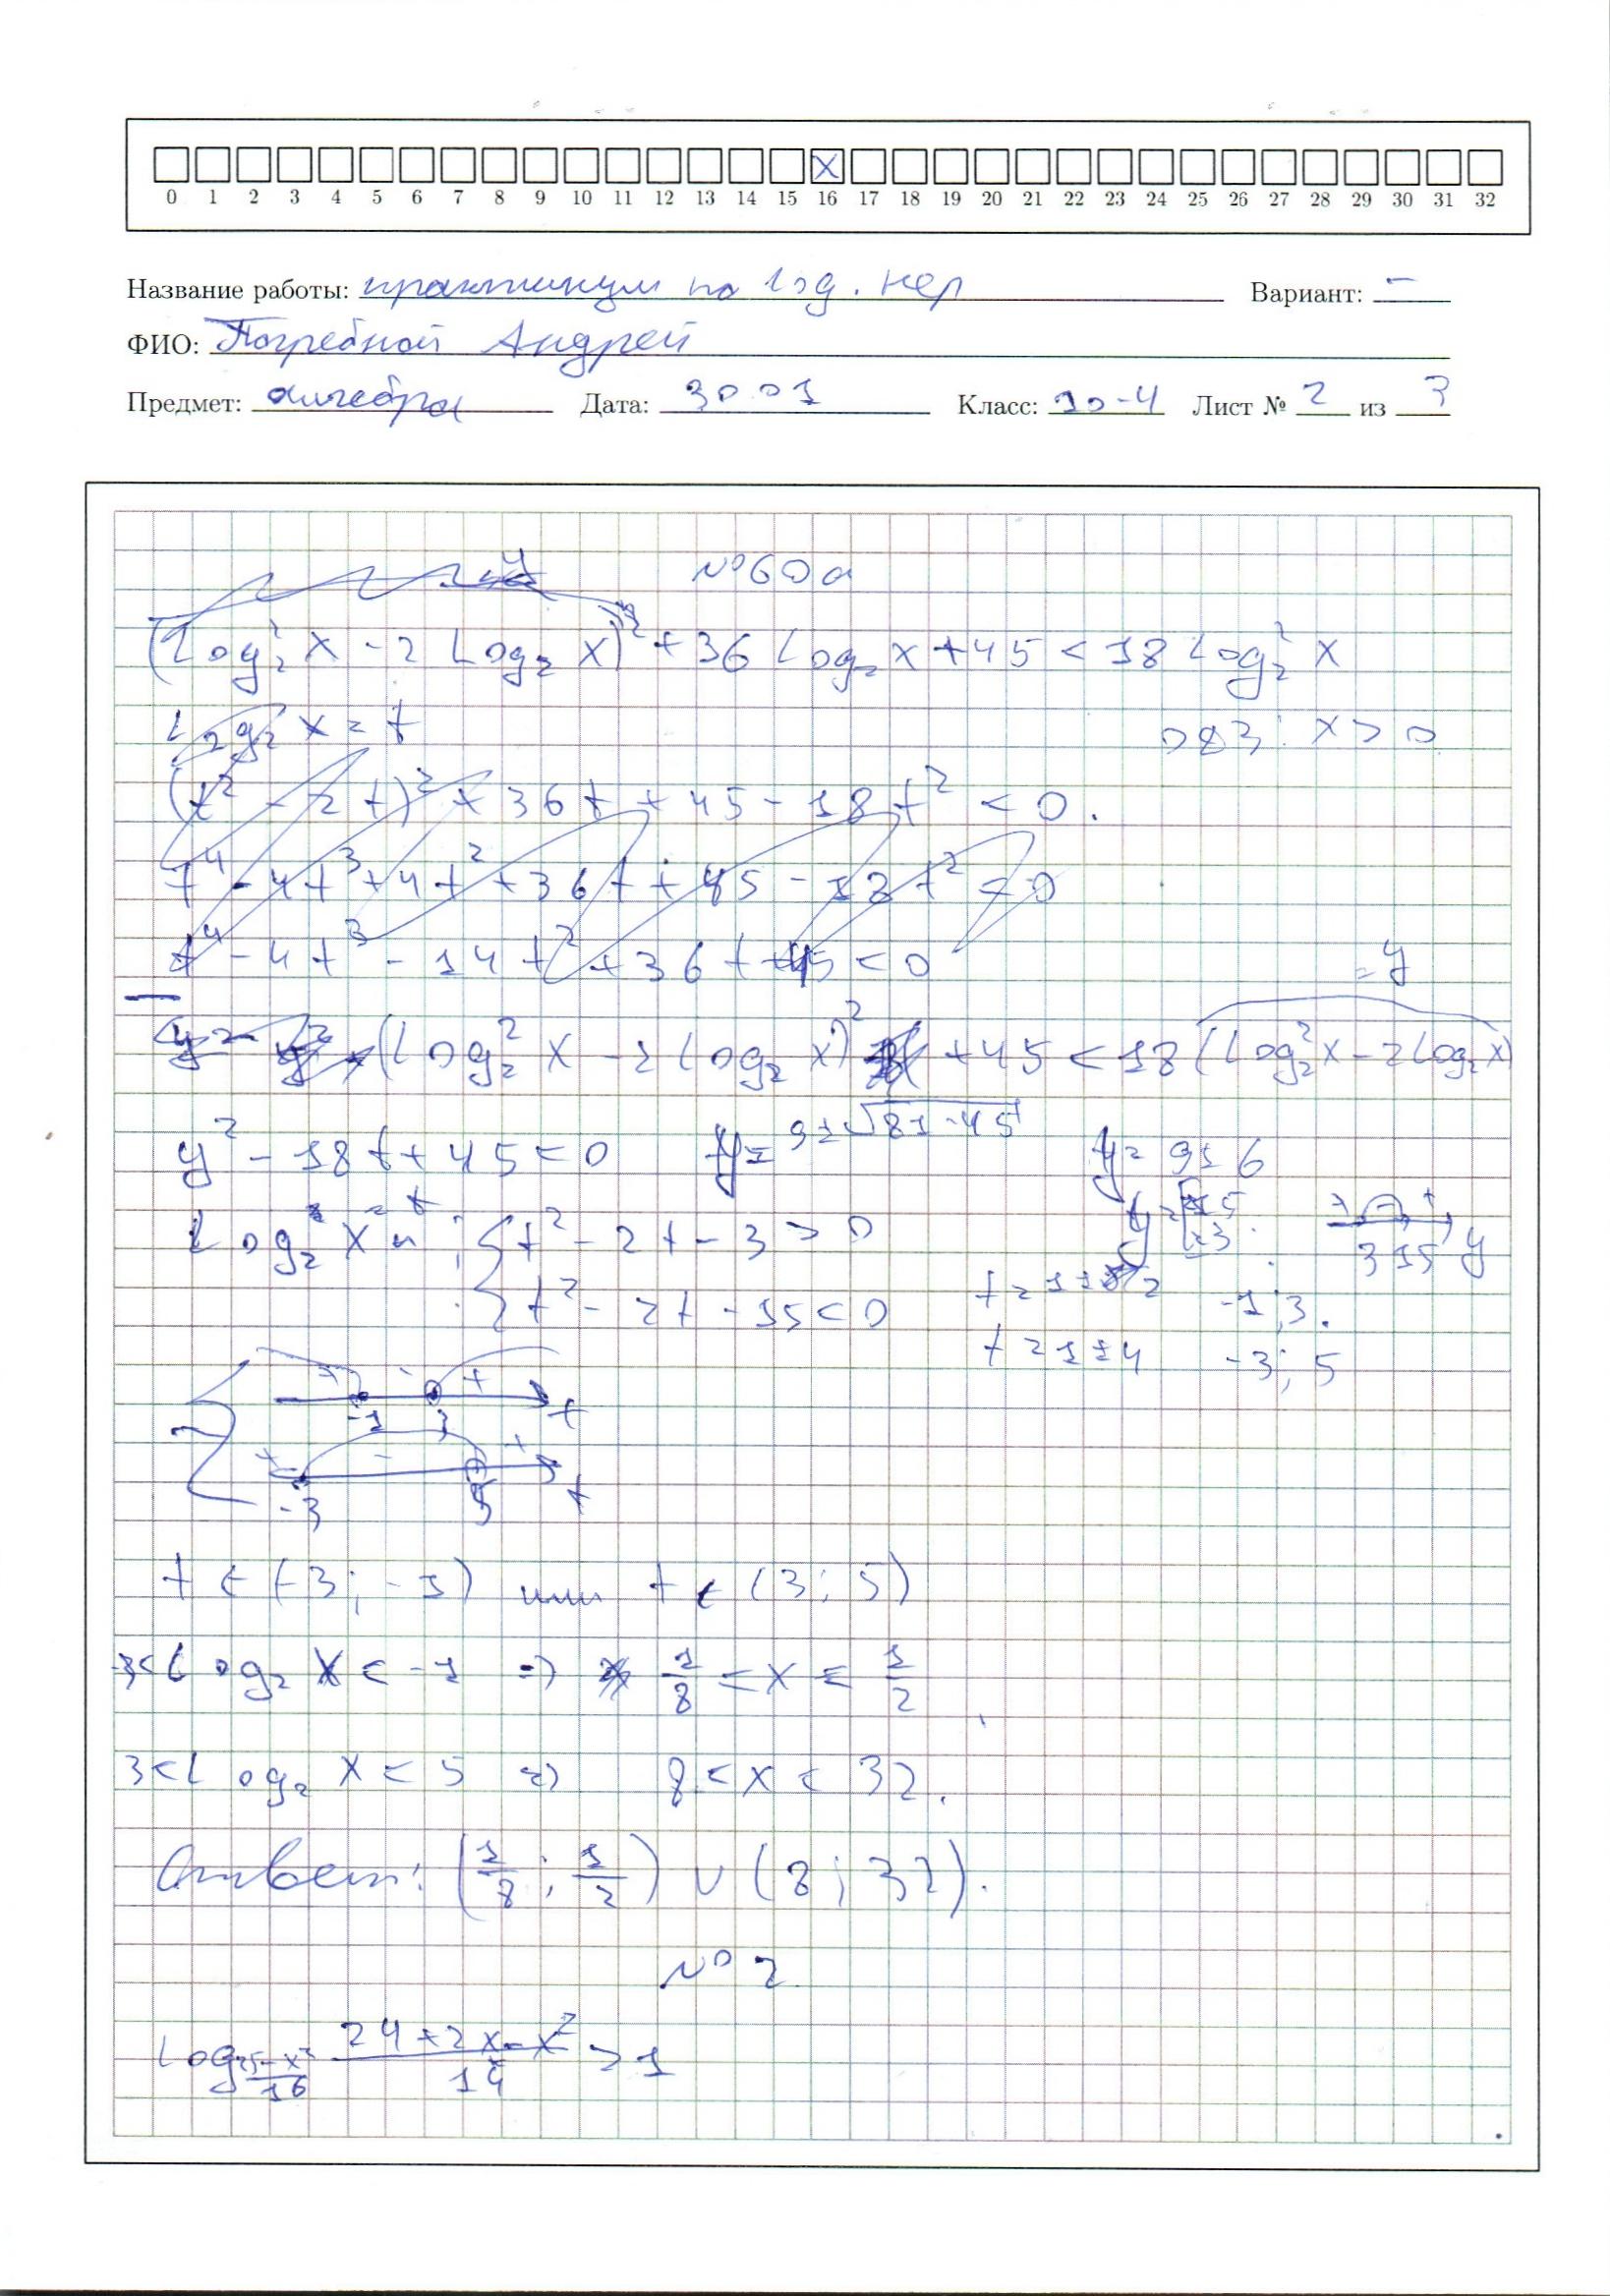 0 1 2 3 4 5 6 7 8 9 10 11 12 13 14 15 16 17 18 19 20 21 22 23 24 25 26 27 28 29 30 31 32
Название работы: практикум по log. нер Вариант: –
ФИО: Погребной Андрей
Предмет: алгебра Дата: 30.01 Класс: 10-4 Лист № 2 из 3
№60а
(log₂² x - 2 log₂ x)² + 36 log₂ x + 45 < 18 log₂² x
log₂ x = t ОДЗ: x > 0
(t² - 2t)² + 36t + 45 - 18t² < 0.
t⁴ - 4t³ + 4t² + 36t + 45 - 18t² < 0
t⁴ - 4t³ - 14t² + 36t + 45 < 0
= y
(log₂² x - 2 log₂ x)² + 45 < 18 (log₂² x - 2 log₂ x)
y² - 18t + 45 < 0 y = 9 ± √81-45 y = 9 ± 6
y = [15 3. + - + 3 15 y
log₂ x = t ; { t² - 2t - 3 > 0
{ t² - 2t - 15 < 0 t = 1 ± 2 -1; 3.
t = 1 ± 4 -3; 5
+ - + -1 3 t
+ - + -3 5 t
t ∈ (-3; -1) или t ∈ (3; 5)
-3 < log₂ x < -1 => 1/8 < x < 1/2
3 < log₂ x < 5 => 8 < x < 32.
Ответ: (1/8; 1/2) ∪ (8; 32).
№ 2
log_{(25-x²)/16} (24+2x-x²)/14 > 1